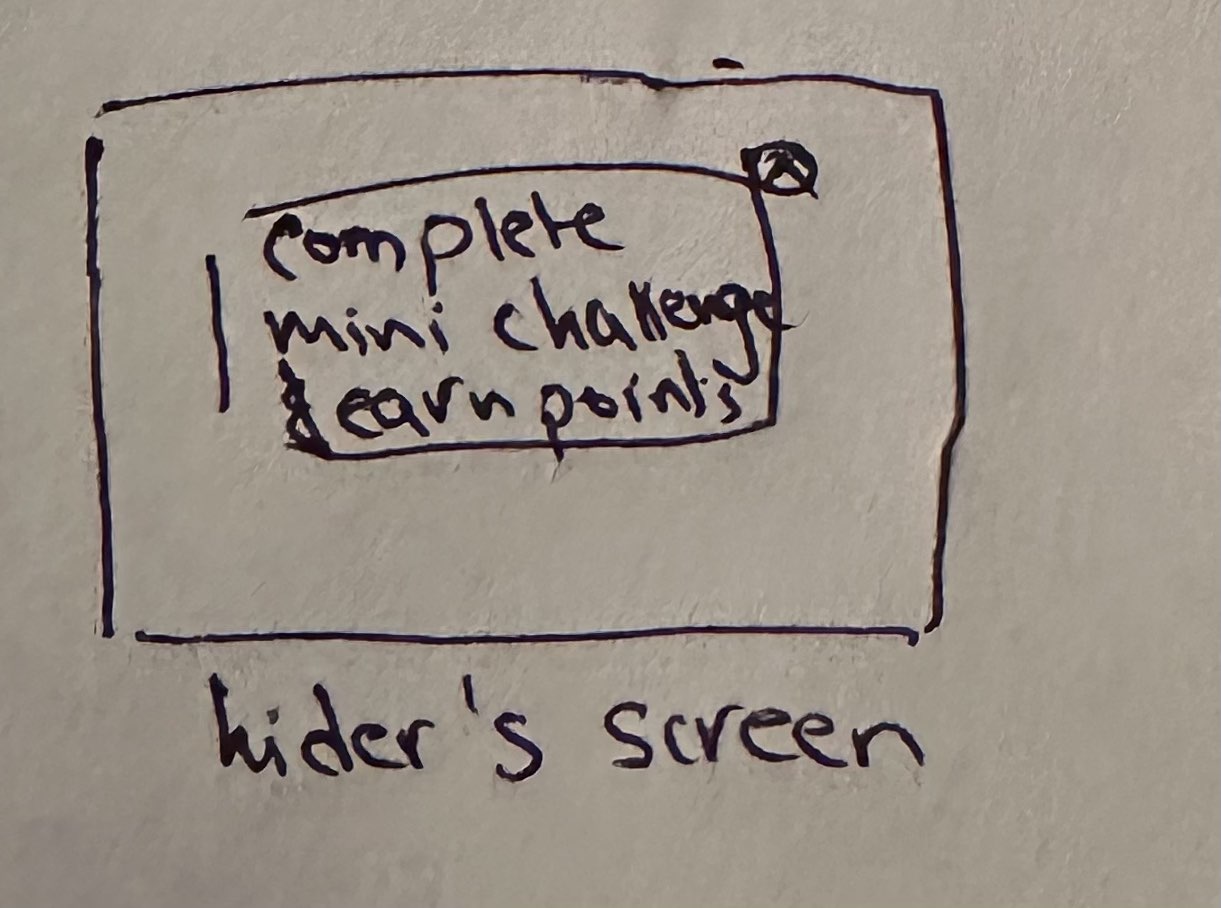 complete
mini challenge
& earn points
hider's screen